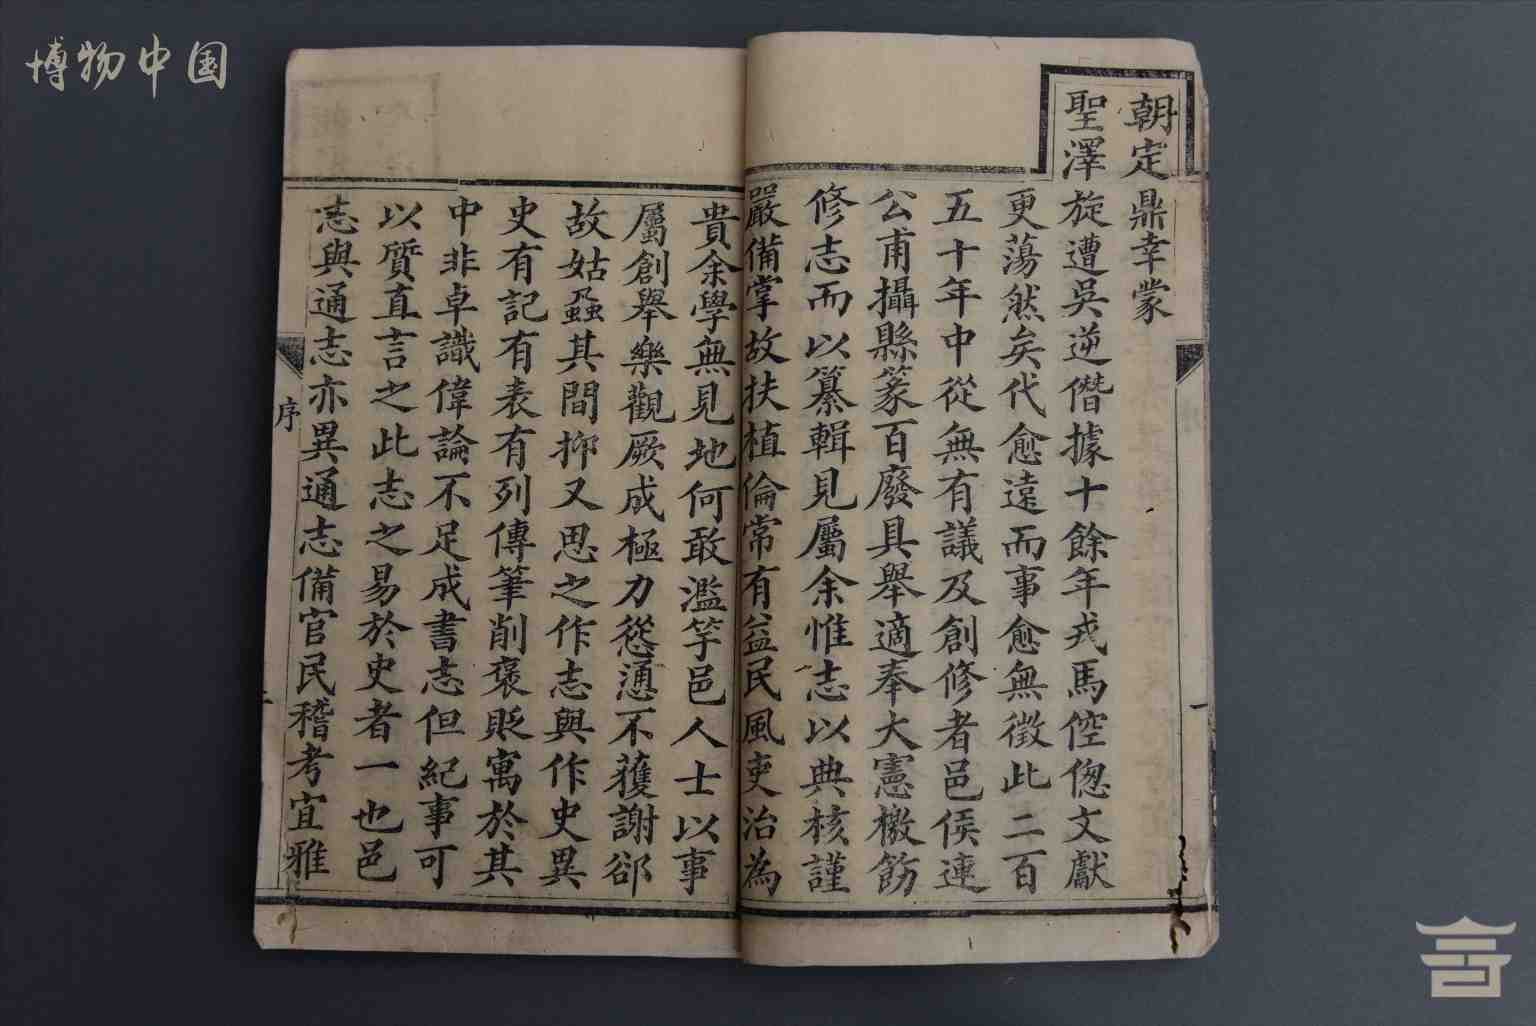 博物中国
朝定鼎幸蒙
聖澤旋遭吳逆僭據十餘年戎馬倥偬文獻
更蕩然矣代愈遠而事愈無徵此二百
五十年中從無有議及創修者邑侯連
公甫攝縣篆百廢具舉適奉大憲檄飭
修志而以纂輯見屬余惟志以典核謹
嚴備掌故扶植倫常有益民風吏治為
貴余學無見地何敢濫竽邑人士以事
屬創舉樂觀厥成極力慫慂不獲謝郤
故姑蝨其間抑又思之作志與作史異
史有記有表有列傳筆削褒貶寓於其
中非卓識偉論不足成書志但紀事可
以質直言之此志之易於史者一也邑
志與通志亦異通志備官民稽考宜雅
序
一
二